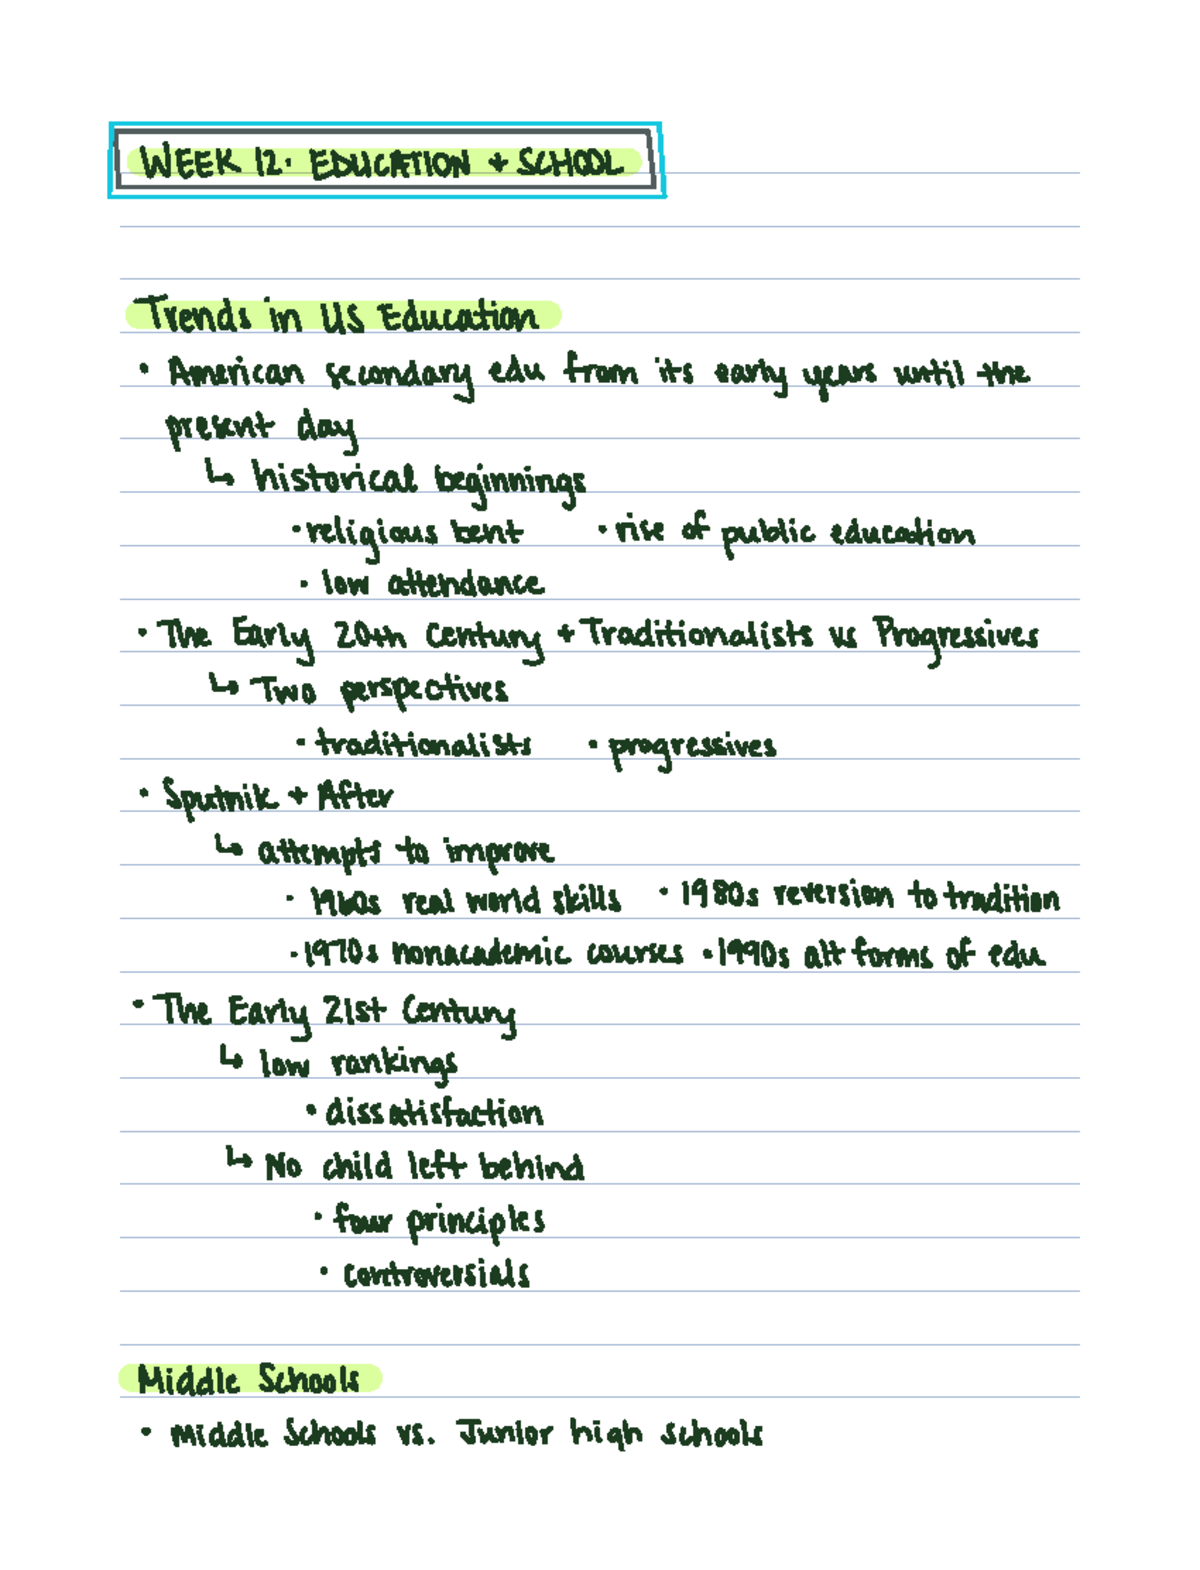 WEEK 12: EDUCATION + SCHOOL
Trends in US Education
• American secondary edu from its early years until the
present day
↳ historical beginnings
• religious bent • rise of public education
• low attendance
• The Early 20th Century + Traditionalists vs Progressives
↳ Two perspectives
• traditionalists • progressives
• Sputnik + After
↳ attempts to improve
• 1960s real world skills • 1980s reversion to tradition
• 1970s nonacademic courses • 1990s alt forms of edu
• The Early 21st Century
↳ low rankings
• dissatisfaction
↳ No child left behind
• four principles
• controversials
Middle Schools
• Middle Schools vs. Junior high schools